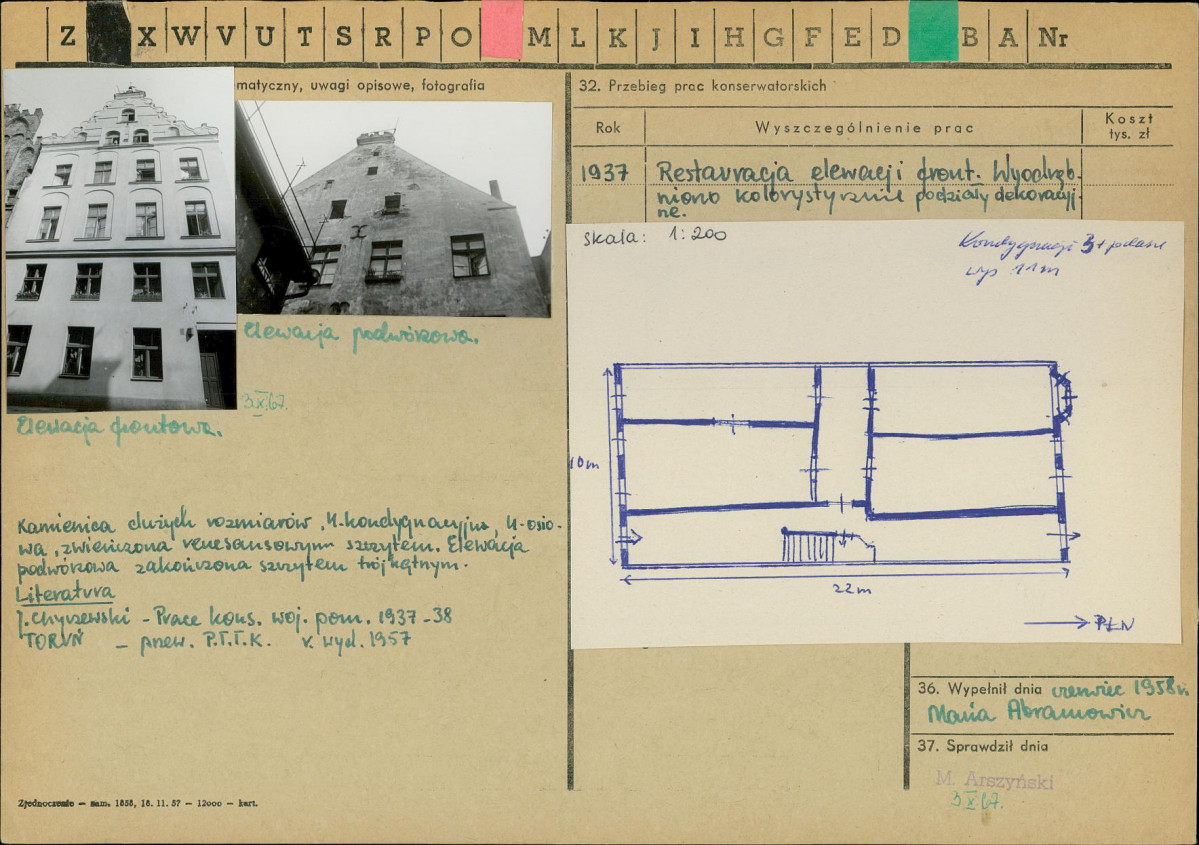 Z X W V U T S R P O M L K J I H G F E D B A Nr
matyczny, uwagi opisowe, fotografia
Elewacja podwórkowa.
3.X.67.
Elewacja frontowa.
Kamienica dużych rozmiarów, 4-kondygnacyjna, 4-osio-
wa, zwieńczona renesansowym szczytem. Elewacja
podwórkowa zakończona szczytem trójkątnym.
Literatura
J. Chyczewski - Prace kons. woj. pom. 1937-38
TORUŃ - przew. P.T.T.K. r. wyd. 1957
Zjednoczenie — zam. 1858, 18. 11. 57 — 12000 — kart.
32. Przebieg prac konserwatorskich
Rok Wyszczególnienie prac Koszt
tys. zł
1937 Restauracja elewacji front. Wyodręb-
niono kolorystycznie podziały dekoracyj-
ne.
skala: 1:200
Kondygnacji 3 + poddasze
wys 11m
10m
22m
PŁN
36. Wypełnił dnia czerwiec 1958 r.
Maria Abramowicz
37. Sprawdził dnia
M. Arszyński
3.X.67.